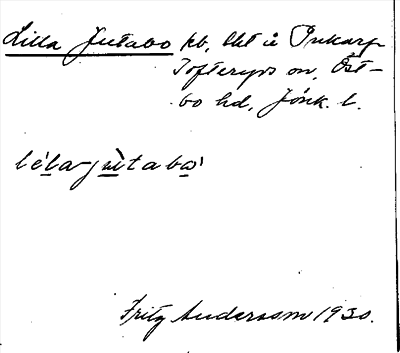 Lilla Jutabo hb, Skt å Pukarp
Tofteryds sn, Öst-
bo hd, Jönk. l.
léla-jùtabo'
Fritz Andersson 1930.